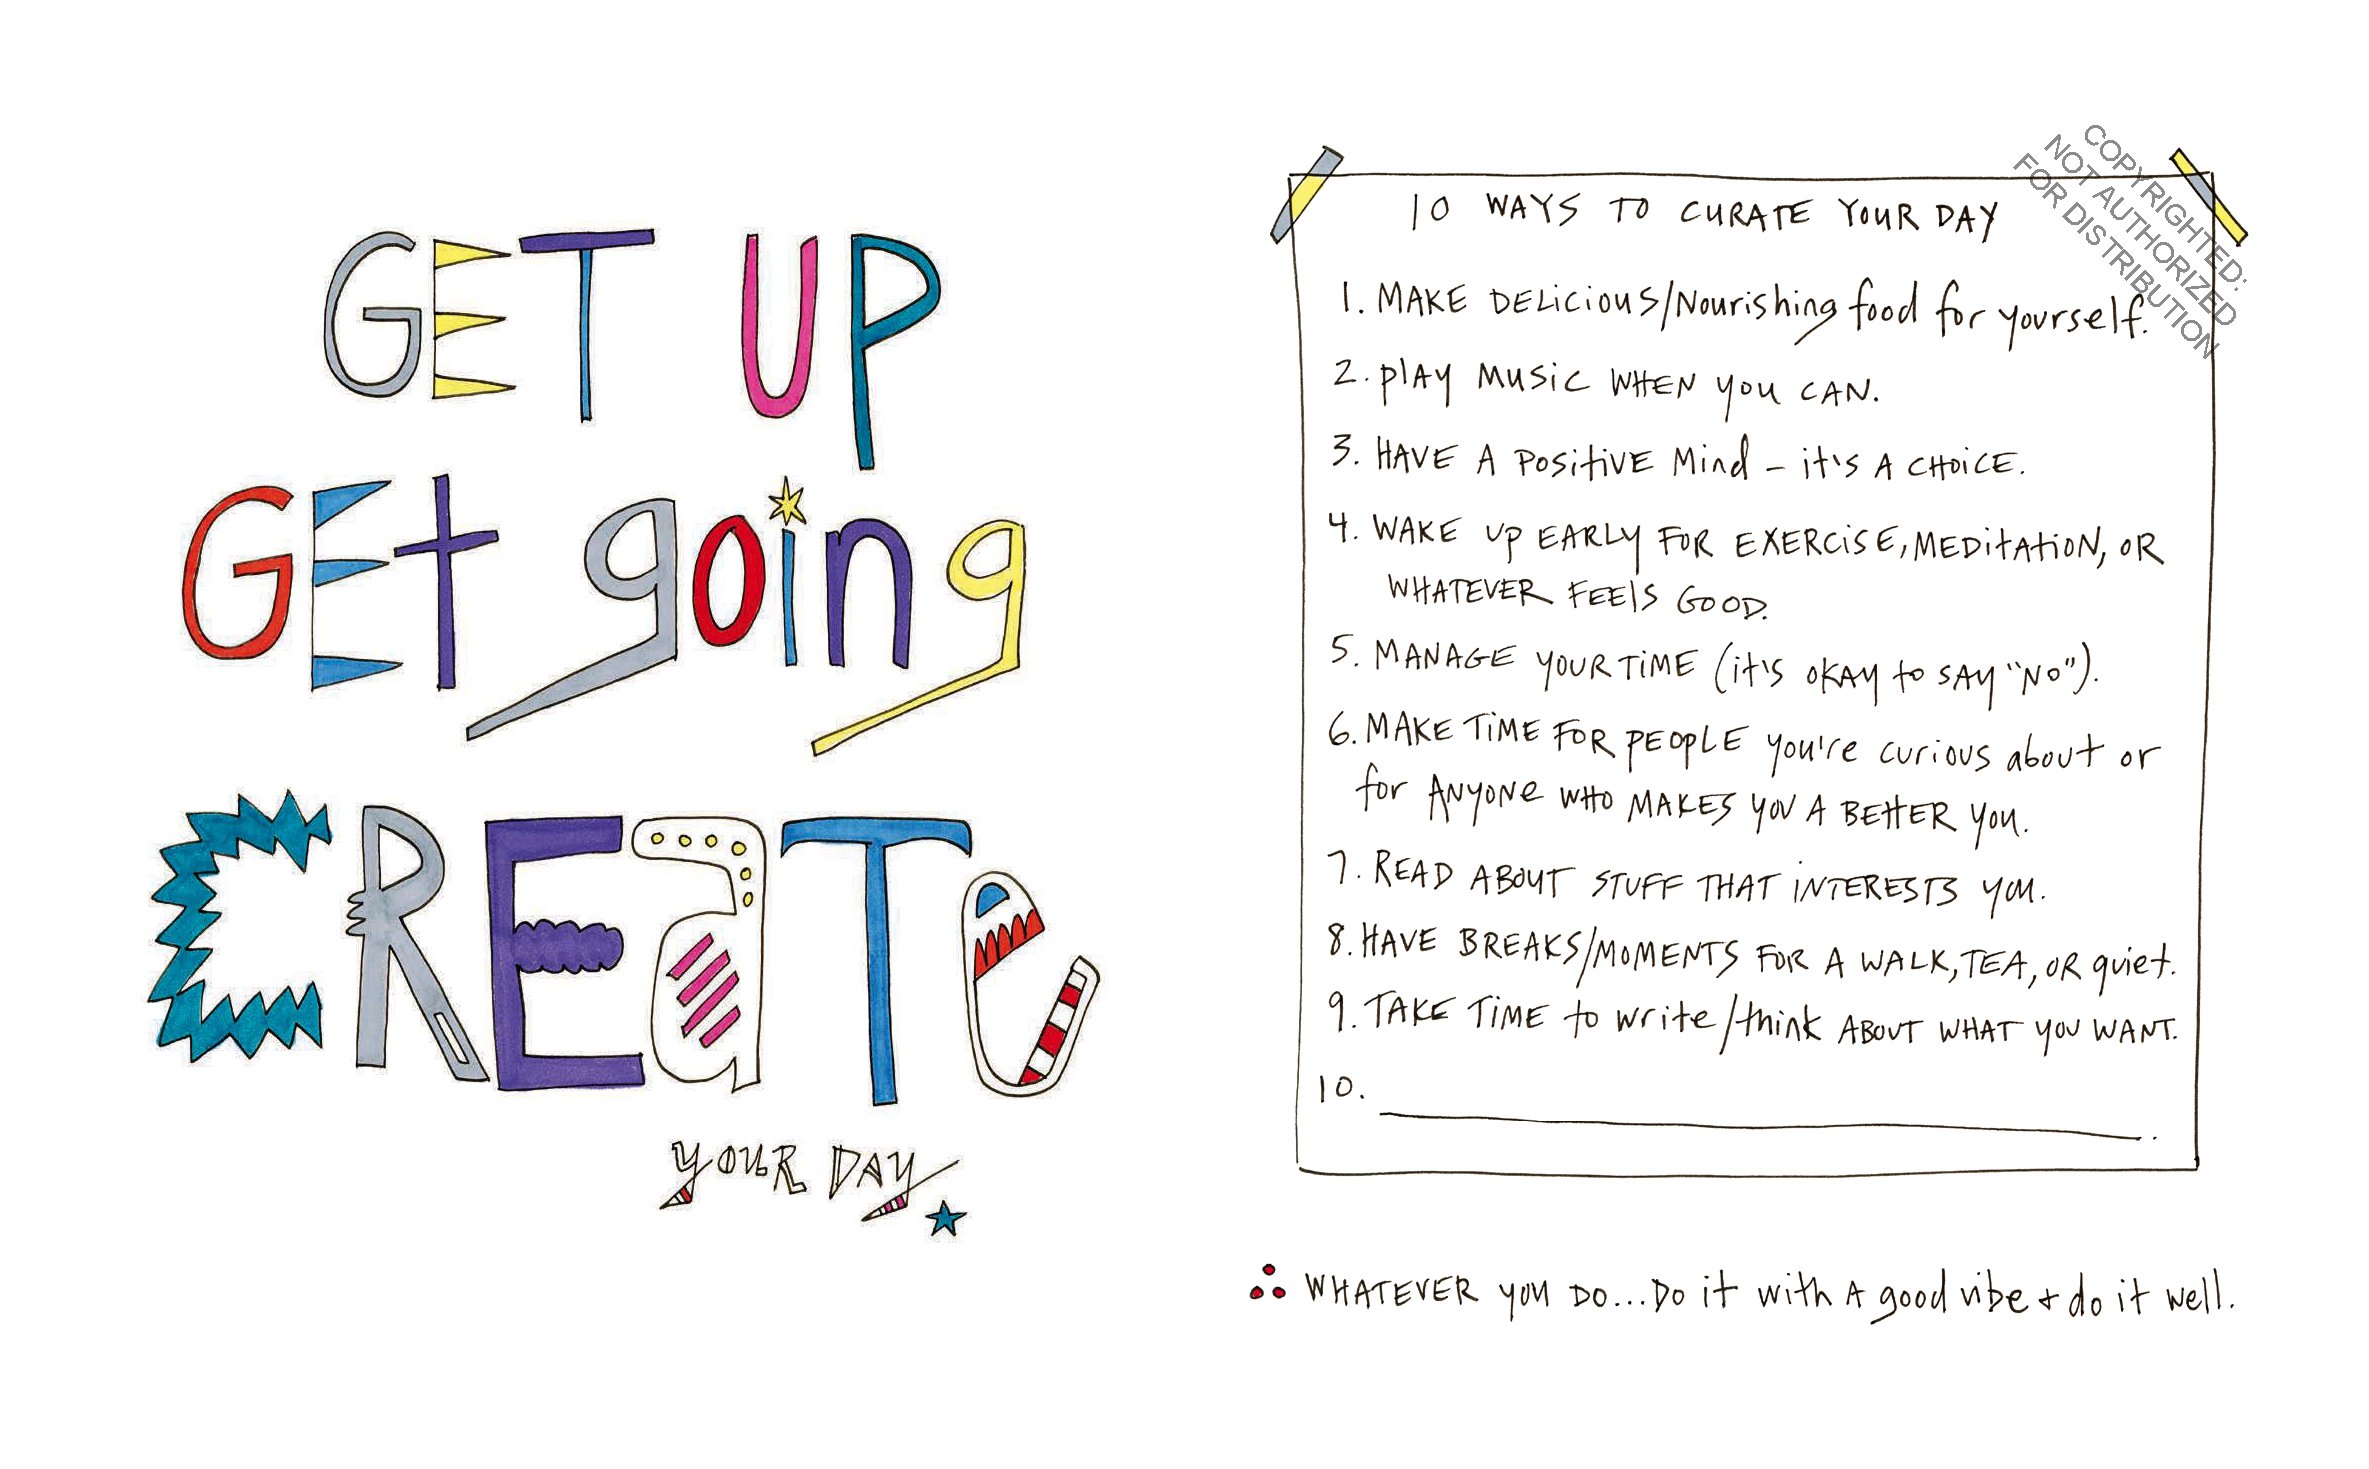 GET UP
GEt going
CREaTe
YOUR DAY
COPYRIGHTED:
NOT AUTHORIZED
FOR DISTRIBUTION
10 WAYS TO CURATE YOUR DAY
1. MAKE DELiciouS/Nourishing food for yourself.
2. plAy MUSiC WHEN you CAN.
3. HAVE A POSitiVE Mind – it's A CHOiCE.
4. WAKE Up EARLy FOR EXERCiSE, MEDitAtiON, OR
WHATEVER FEElS GOOD.
5. MANAGE YOUR TiME (it's OKAY to SAY "NO").
6. MAKE TiME FOR PEOPLE you're curious about or
for ANYONe WHO MAKES YOU A BEttER YOU.
7. READ ABOUT STUFF THAT iNTERESTS YOU.
8. HAVE BREAKS/MOMENTS FOR A WALK, TEA, OR quiet.
9. TAKE TiME to write/think ABOUT WHAT YOU WANT.
10. ____________________.
WHATEVER you DO...DO it with A good vibe + do it well.